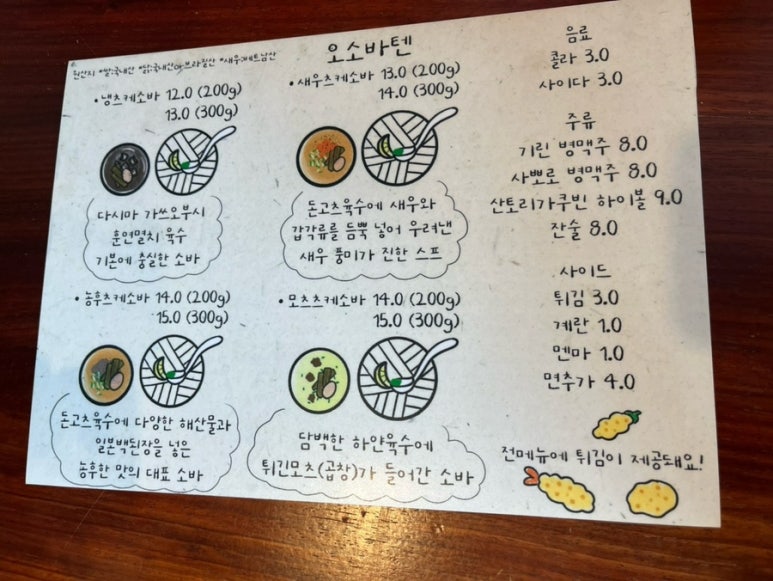 오소바텐
원산지 *쌀:국내산 *닭:국내산/브라질산 *새우:베트남산
• 냉츠케소바 12.0 (200g)
13.0 (300g)
다시마 가쓰오부시
훈연멸치 육수
기본에 충실한 소바
• 새우츠케소바 13.0 (200g)
14.0 (300g)
돈고츠육수에 새우와
갑각류를 듬뿍 넣어 우려낸
새우 풍미가 진한 스프
• 농후츠케소바 14.0 (200g)
15.0 (300g)
돈고츠육수에 다양한 해산물과
일본백된장을 넣은
농후한 맛의 대표 소바
• 모츠츠케소바 14.0 (200g)
15.0 (300g)
담백한 하얀육수에
튀긴모츠(곱창)가 들어간 소바
음료
콜라 3.0
사이다 3.0
주류
기린 병맥주 8.0
사뽀로 병맥주 8.0
산토리가쿠빈 하이볼 9.0
잔술 8.0
사이드
튀김 3.0
계란 1.0
멘마 1.0
면추가 4.0
전메뉴에 튀김이 제공돼요!